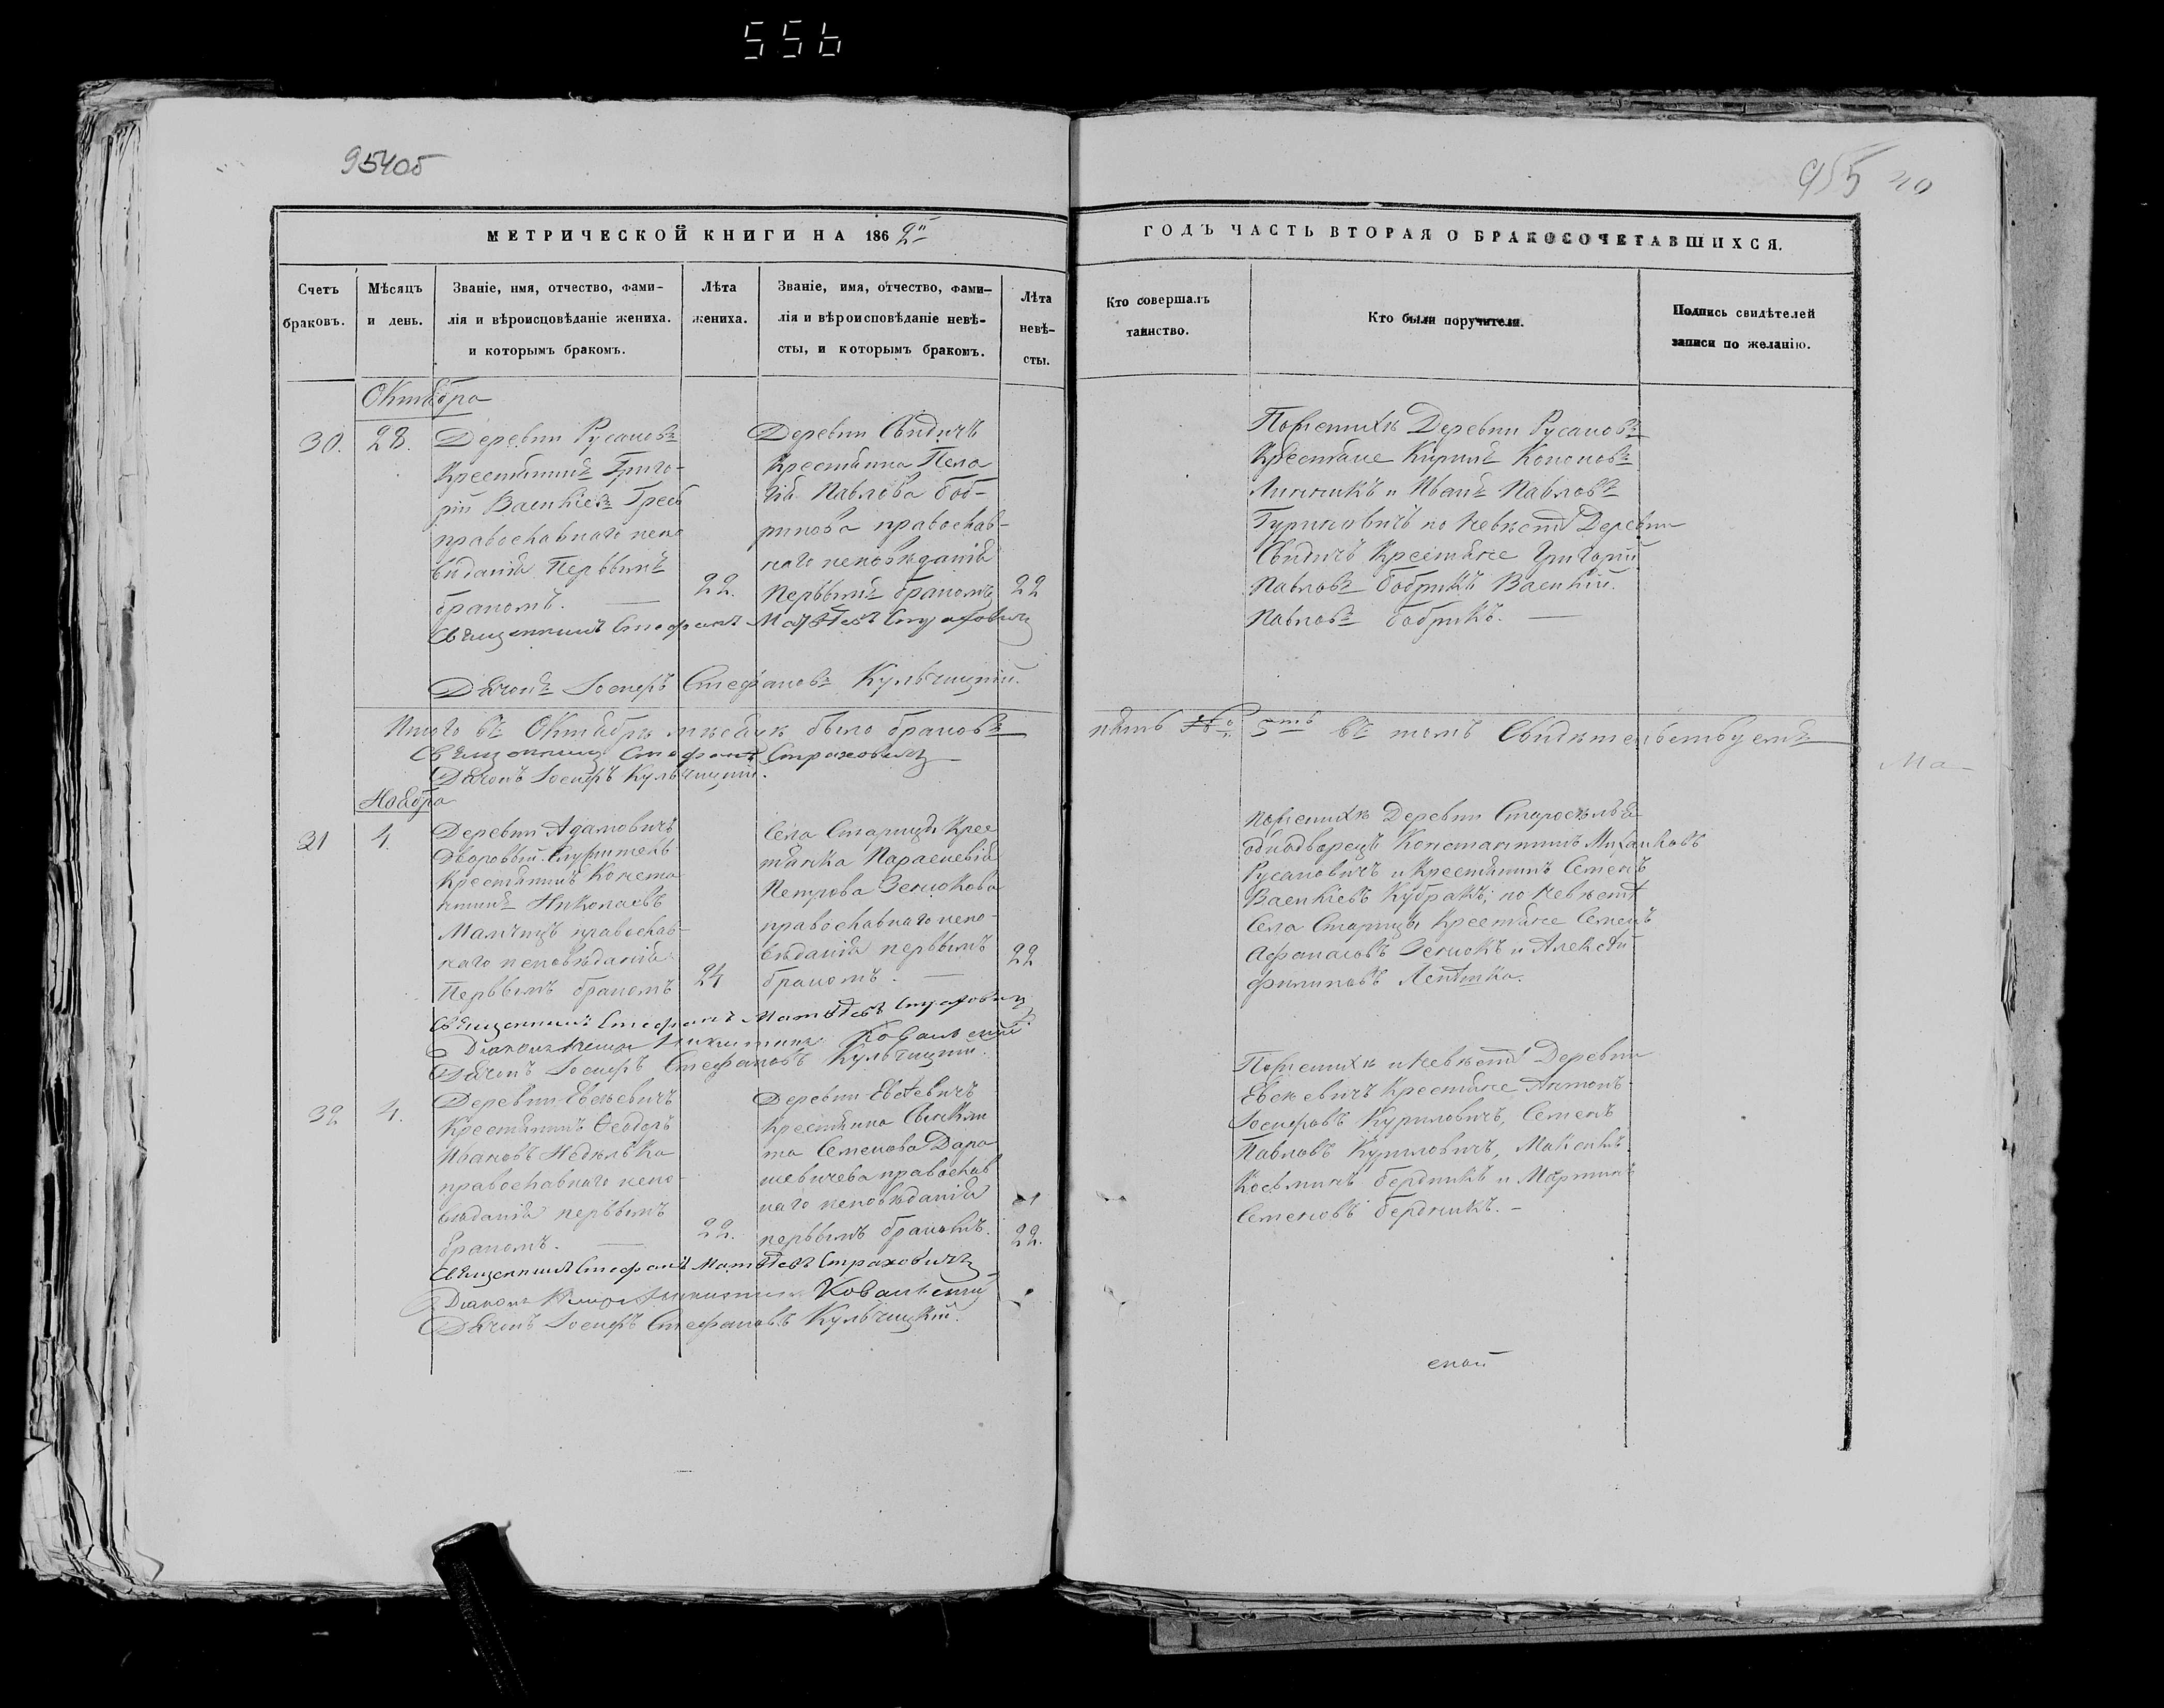 556
954об
955 40
МЕТРИЧЕСКОЙ КНИГИ НА 1862й
ГОДЪ ЧАСТЬ ВТОРАЯ О БРАКОСОЧЕТАВШИХСЯ.
Счетъ
браковъ.
Мѣсяцъ
и день.
Званіе, имя, отчество, фами-
лія и вѣроисповѣданіе жениха.
и которымъ бракомъ.
Лѣта
жениха.
Званіе, имя, отчество, фами-
лія и вѣроисповѣданіе невѣ-
сты, и которымъ бракомъ.
Лѣта
невѣ-
сты.
Кто совершалъ
таинство.
Кто были поручители.
Подпись свидѣтелей
записи по желанію.
Октября
30.
28.
Деревни Русановъ
Крестьянинъ Григо-
рій Васильевъ Гресь
православнаго испо
вѣданія Первымъ
бракомъ. —
22.
Деревни Свидичъ
Крестьянка Пела
гія Павлова Боб-
рикова православ-
наго исповѣданія
Первымъ бракомъ
22
Священникъ Стефанъ Матѳеевъ Страховичъ
Дьячокъ Іосифъ Стефановъ Кульчицкій.
По женихѣ Деревни Русановъ
Крестьяне Кирилъ Кононовъ
Линникъ и Иванъ Павловъ
Гуриновичъ по Невѣстѣ Деревни
Свидичъ Крестьяне Григорій
Павловъ Бобрикъ Василій
Павловъ Бобрикъ. —
Итого въ Октябрѣ мѣсяцѣ было браковъ
пять № 5ть въ томъ Свидѣтельствуемъ
Священникъ Стефанъ Страховичъ
Дьячокъ Іосифъ Кульчицкій.
Ма
Ноября
31
4.
Деревни Адамовичъ
Дворовый Служитель
Крестьянинъ Конста
нтинъ Николаевъ
Мамчицъ православ-
наго исповѣданія
Первымъ бракомъ
24
Села Старицы Крес
тьянка Параскевія
Петрова Зенюкова
православнаго испо-
вѣданія первымъ
бракомъ. —
22
Священникъ Стефанъ Матѳеевъ Страховичъ
Діаконъ Никитинъ Ковальскій
Дьячокъ Іосифъ Стефановъ Кульчицкій.
По женихѣ Деревни Староселья
однодворецъ Константинъ Михайловъ
Русановичъ и Крестьянинъ Семенъ
Васильевъ Кубракъ; по невѣстѣ
Села Старицы Крестьяне Семенъ
Афанасовъ Зенюкъ и Алексѣй
Филиповъ Лепѣшка.
32
4.
Деревни Евсѣевичъ
Крестьянинъ Ѳеодоръ
Ивановъ Недѣлька
православнаго испо-
вѣданія первымъ
бракомъ. —
22.
Деревни Евсѣевичъ
Крестьянка
та Семенова Дара
шевичева православ
наго исповѣданія
первымъ бракомъ.
22.
Священникъ Стефанъ Матѳеевъ Страховичъ
Діаконъ Никитинъ Ковальскій
Дьячокъ Іосифъ Стефановъ Кульчицкій.
По женихѣ и Невѣстѣ Деревни
Евсѣевичъ Крестьяне Антонъ
Іосифовъ Куриловичъ, Семенъ
Павловъ Куриловичъ, Максимъ
Косьминъ Бердникъ и Мартинъ
Семеновъ Бердникъ. —
ской